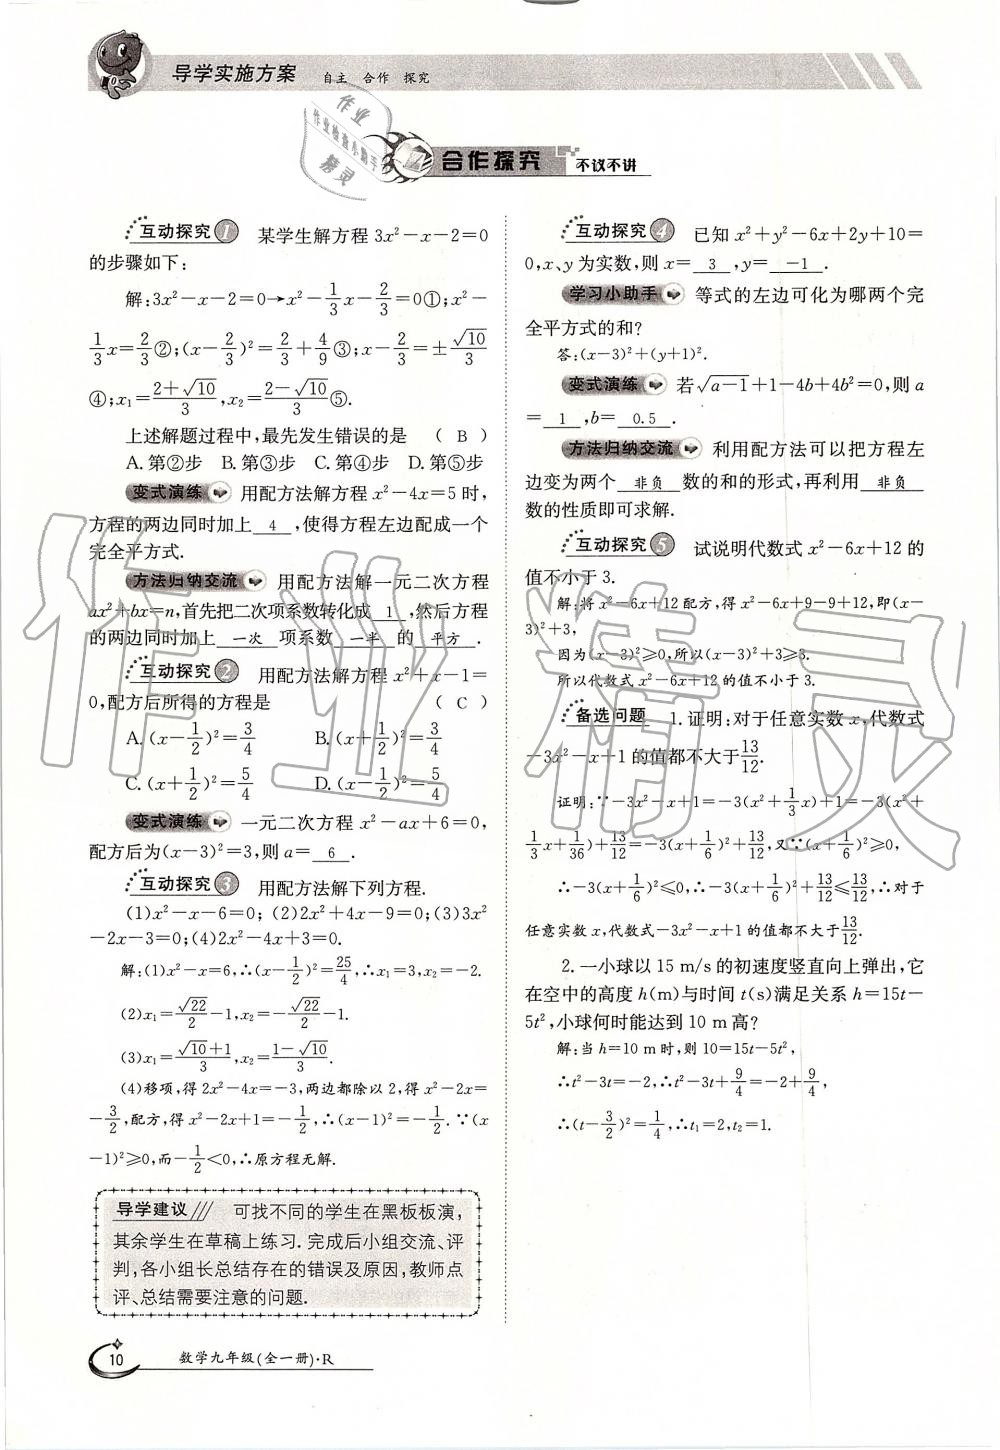 导学实施方案 自主 合作 探究
合作探究 不议不讲
互动探究1 某学生解方程3x²-x-2=0
的步骤如下:
解:3x²-x-2=0→x²-1/3x-2/3=0①;x²-
1/3x=2/3②;(x-2/3)²=2/3+4/9③;x-2/3=±√10/3
④;x₁=(2+√10)/3,x₂=(2-√10)/3⑤.
上述解题过程中,最先发生错误的是 ( B )
A.第②步 B.第③步 C.第④步 D.第⑤步
变式演练 用配方法解方程x²-4x=5时,
方程的两边同时加上 4 ,使得方程左边配成一个
完全平方式.
方法归纳交流 用配方法解一元二次方程
ax²+bx=n,首先把二次项系数转化成 1 ,然后方程
的两边同时加上 一次 项系数 一半 的 平方 .
互动探究2 用配方法解方程x²+x-1=
0,配方后所得的方程是 ( C )
A.(x-1/2)²=3/4 B.(x+1/2)²=3/4
C.(x+1/2)²=5/4 D.(x-1/2)²=5/4
变式演练 一元二次方程x²-ax+6=0,
配方后为(x-3)²=3,则a= 6 .
互动探究3 用配方法解下列方程.
(1)x²-x-6=0;(2)2x²+4x-9=0;(3)3x²
-2x-3=0;(4)2x²-4x+3=0.
解:(1)x²-x=6,∴(x-1/2)²=25/4,∴x₁=3,x₂=-2.
(2)x₁=√22/2-1,x₂=-√22/2-1.
(3)x₁=(√10+1)/3,x₂=(1-√10)/3.
(4)移项,得2x²-4x=-3,两边都除以2,得x²-2x=
-3/2,配方,得x²-2x+1=-1/2,∴(x-1)²=-1/2.∵(x
-1)²≥0,而-1/2<0,∴原方程无解.
导学建议 可找不同的学生在黑板板演,
其余学生在草稿上练习.完成后小组交流、评
判,各小组长总结存在的错误及原因,教师点
评、总结需要注意的问题.
10 数学九年级(全一册)·R
互动探究4 已知x²+y²-6x+2y+10=
0,x、y为实数,则x= 3 ,y= -1 .
学习小助手 等式的左边可化为哪两个完
全平方式的和?
答:(x-3)²+(y+1)².
变式演练 若√a-1+1-4b+4b²=0,则a
= 1 ,b= 0.5 .
方法归纳交流 利用配方法可以把方程左
边变为两个 非负 数的和的形式,再利用 非负
数的性质即可求解.
互动探究5 试说明代数式x²-6x+12的
值不小于3.
解:将x²-6x+12配方,得x²-6x+9-9+12,即(x-
3)²+3,
因为(x-3)²≥0,所以(x-3)²+3≥3.
所以代数式x²-6x+12的值不小于3.
备选问题 1.证明:对于任意实数x,代数式
-3x²-x+1的值都不大于13/12.
证明:∵-3x²-x+1=-3(x²+1/3x)+1=-3(x²+
1/3x+1/36)+13/12=-3(x+1/6)²+13/12,又∵(x+1/6)²≥0,
∴-3(x+1/6)²≤0,∴-3(x+1/6)²+13/12≤13/12,∴对于
任意实数x,代数式-3x²-x+1的值都不大于13/12.
2.一小球以15 m/s的初速度竖直向上弹出,它
在空中的高度h(m)与时间t(s)满足关系h=15t-
5t²,小球何时能达到10 m高?
解:当h=10 m时,则10=15t-5t²,
∴t²-3t=-2,∴t²-3t+9/4=-2+9/4,
∴(t-3/2)²=1/4,∴t₁=2,t₂=1.
作业
作业检查小助手
精灵
作业精灵